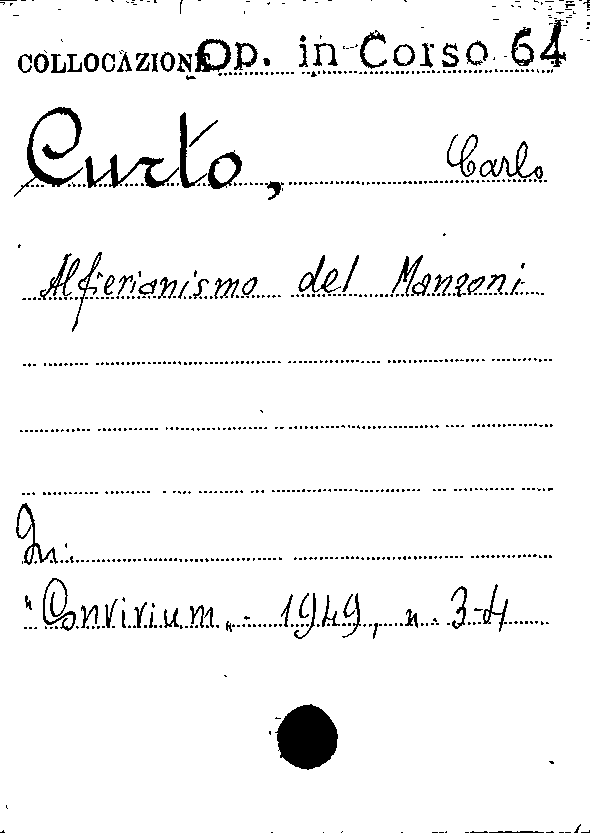 COLLOCAZIONE Op. in Corso 64
Curto, Carlo
Alfierianismo del Manzoni
In:
"Convivium" - 1949, n. 3-4